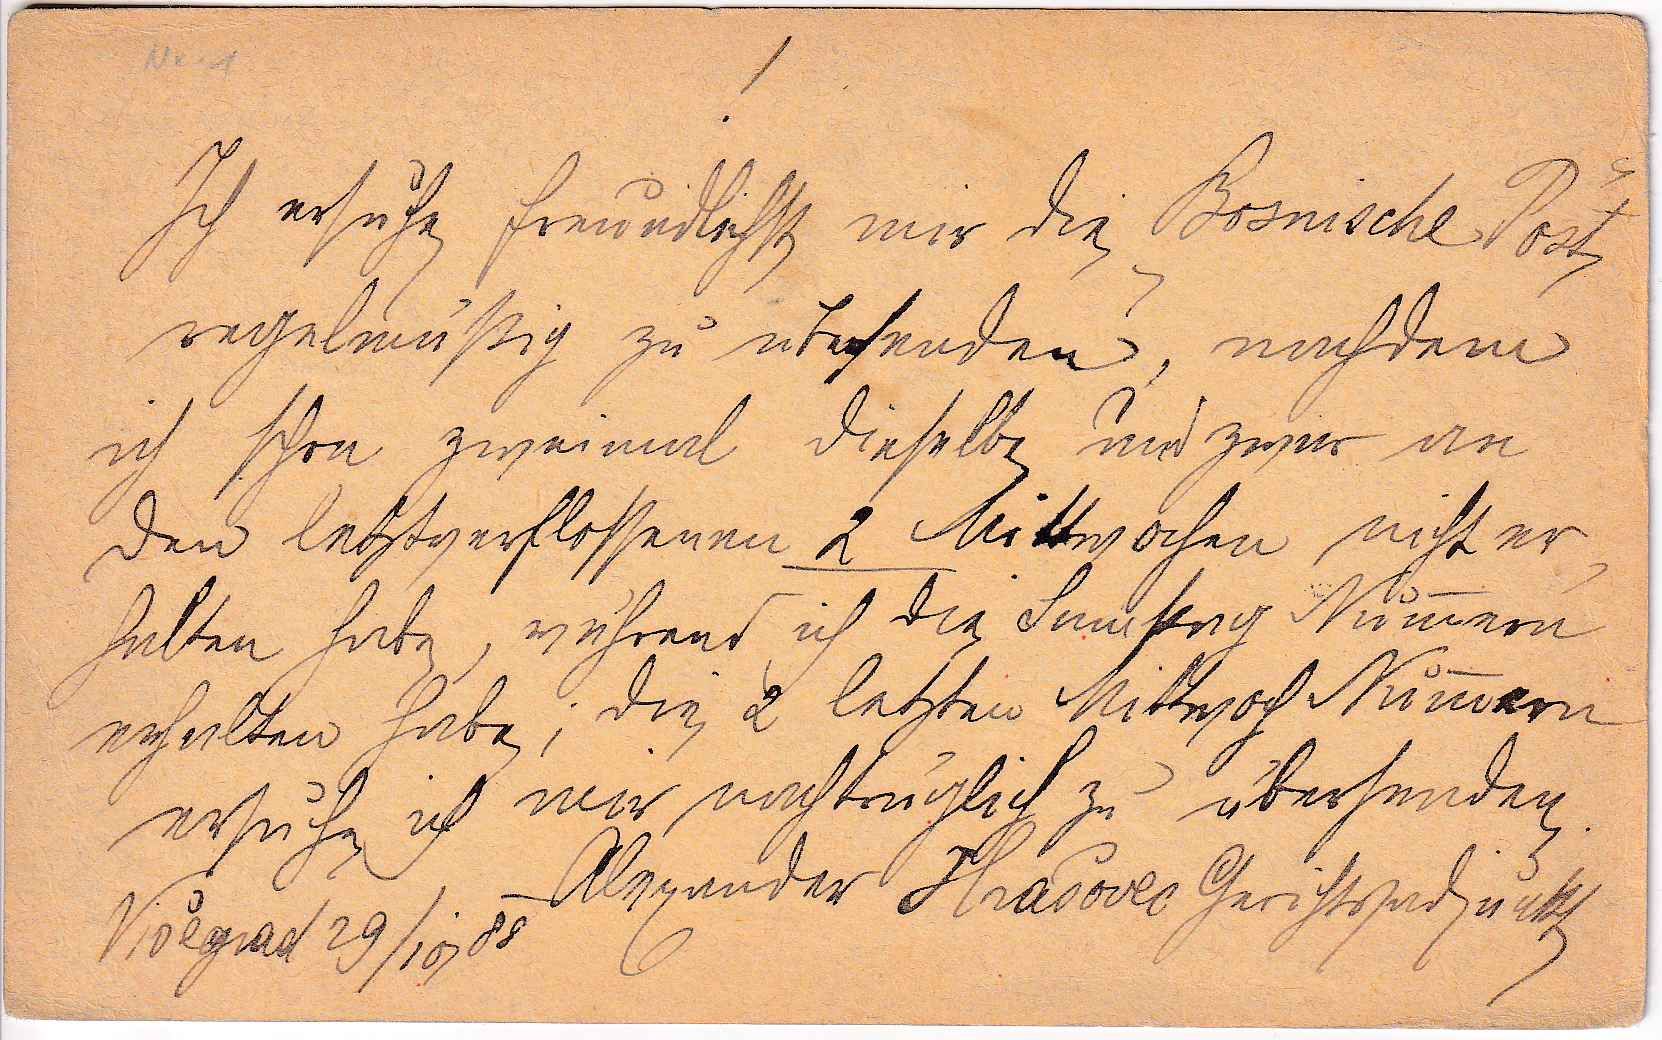 Ich ersuche freundlichst mir die Bosnische Post
regelmäßig zu übersenden, nachdem
ich schon zweimal dieselbe und zwar an
den letztverflossenen 2 Mittwochen nicht er-
halten habe, während ich die Samstag Num̅ern
erhalten habe; die 2 letzten Mittwoch Num̅ern
ersuche ich mir nachträglich zu übersenden.
Alexander Hrasovec Gerichtsadjunkt
Višegrad 29/10 88